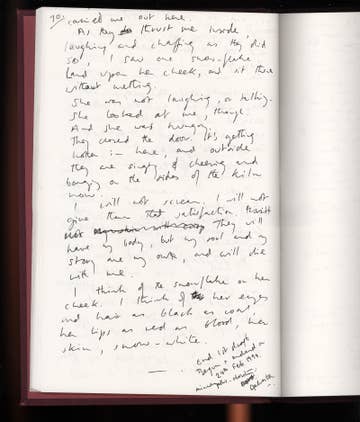 70.
carried me out here.
As they thrust me inside,
laughing and chaffing as they did
so, I saw one snowflake
land upon her cheek, and sit there
without melting.
She was not laughing, or talking.
She looked at me, though.
And she was hungry.
They closed the door. It's getting
hotter in here, and outside
they are singing & cheering and
banging on the sides of the kiln
now.
I will not scream. I will not
give them that satisfaction.
They will
have my body, but my soul and my
story are my own, and will die
with me.
I think of the snowflake on her
cheek. I think of her eyes
and hair as black as coal,
her lips as red as blood, her
skin, snow-white.
End 1st draft
Begun & ended on
24th Feb 1994.